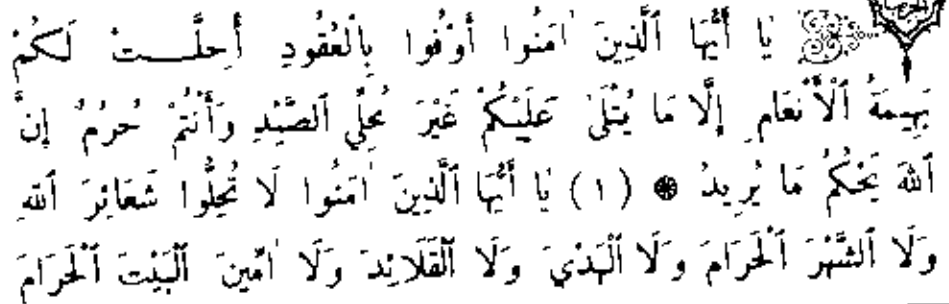 يَا أَيُّهَا ٱلَّذِينَ اٰمَنُوا أَوْفُوا بِٱلْعُقُودِ أُحِلَّــــتْ لَكُمْ
بَهِيمَةُ ٱلْأَنْعَامِ إِلَّا مَا يُتْلَىٰ عَلَيْكُمْ غَيْرَ مُحِلِّي ٱلصَّيْدِ وَأَنْتُمْ حُرُمٌ إِنَّ
ٱللهَ يَحْكُمُ مَا يُرِيدُ ۞ (١) يَا أَيُّهَا ٱلَّذِينَ اٰمَنُوا لَا تُحِلُّوا شَعَائِرَ ٱللهِ
وَلَا ٱلشَّهْرَ ٱلْحَرَامَ وَلَا ٱلْهَدْيَ وَلَا ٱلْقَلَائِدَ وَلَا اٰمِّينَ ٱلْبَيْتَ ٱلْحَرَامَ